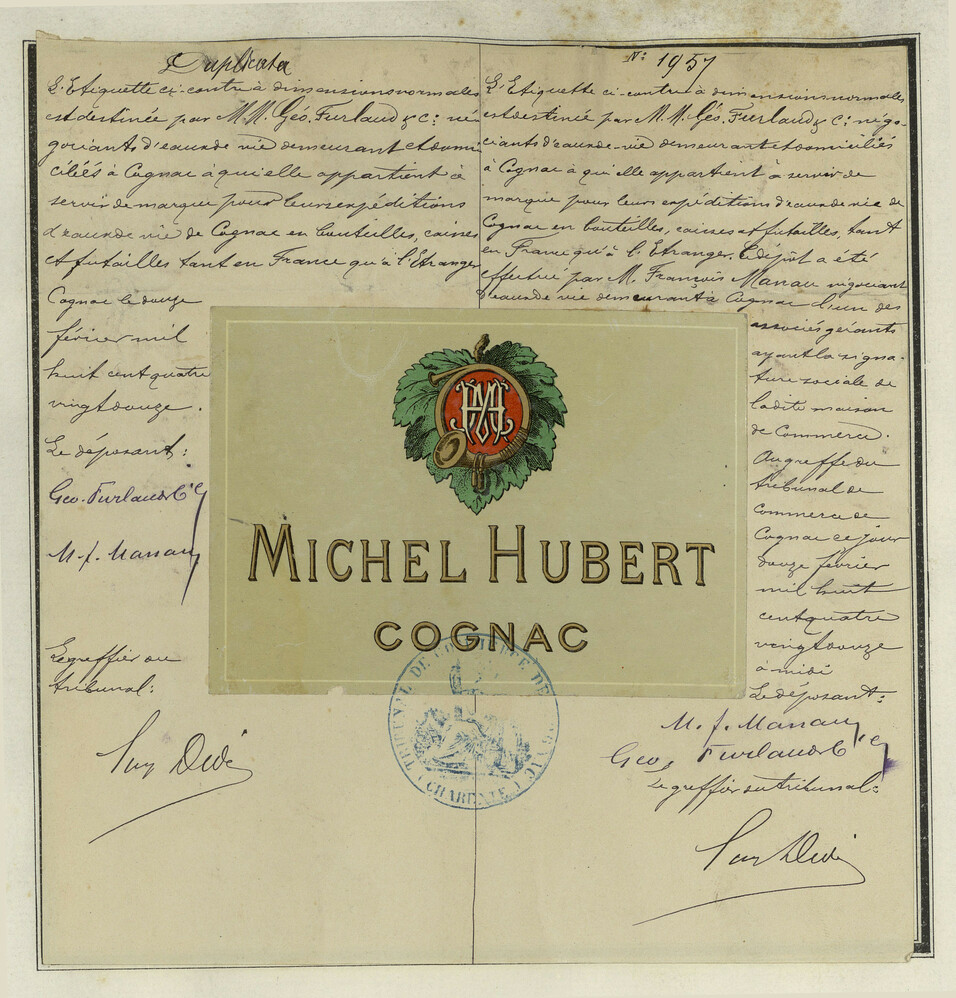 Duplicata
L'Etiquette ci-contre à dimensions normales
est destinée par M.M. Géo. Furlaud & Cie: né
gociants d'eaux de vie demeurant et domi
ciliés à Cognac à qui elle appartient à
servir de marque pour leurs expéditions
d'eaux de vie de Cognac en bouteilles, caisses
et futailles tant en France qu'à l'Etranger
Cognac le douze
février mil
huit cent quatre
vingt douze.
Le déposant:
Geo. Furlaud & Cie
M. f. Manau
Le greffier du
tribunal:
No: 1957
L'Etiquette ci-contre à dimensions normales
est destinée par M.M. Géo. Furlaud & Cie: négo-
ciants d'eaux de-vie demeurant et domiciliés
à Cognac à qui elle appartient à servir de
marque pour leurs expéditions d'eaux de vie de
Cognac en bouteilles, caisses et futailles, tant
en France qu'à l'Etranger. Le dépôt a été
effectué par M. François Manau négociant
d'eaux de vie demeurant à Cognac l'un des
associés gérants
ayant la signa-
ture sociale de
ladite maison
de Commerce.
Au greffe du
tribunal de
Commerce de
Cognac ce jour
douze février
mil huit
cent quatre
vingt douze
à midi
Le déposant:
M. f. Manau
Geo. Furlaud & Cie
Le greffier du tribunal:
MH
MICHEL HUBERT
COGNAC
TRIBUNAL DE COMMERCE DE COGNAC
(CHARENTE)